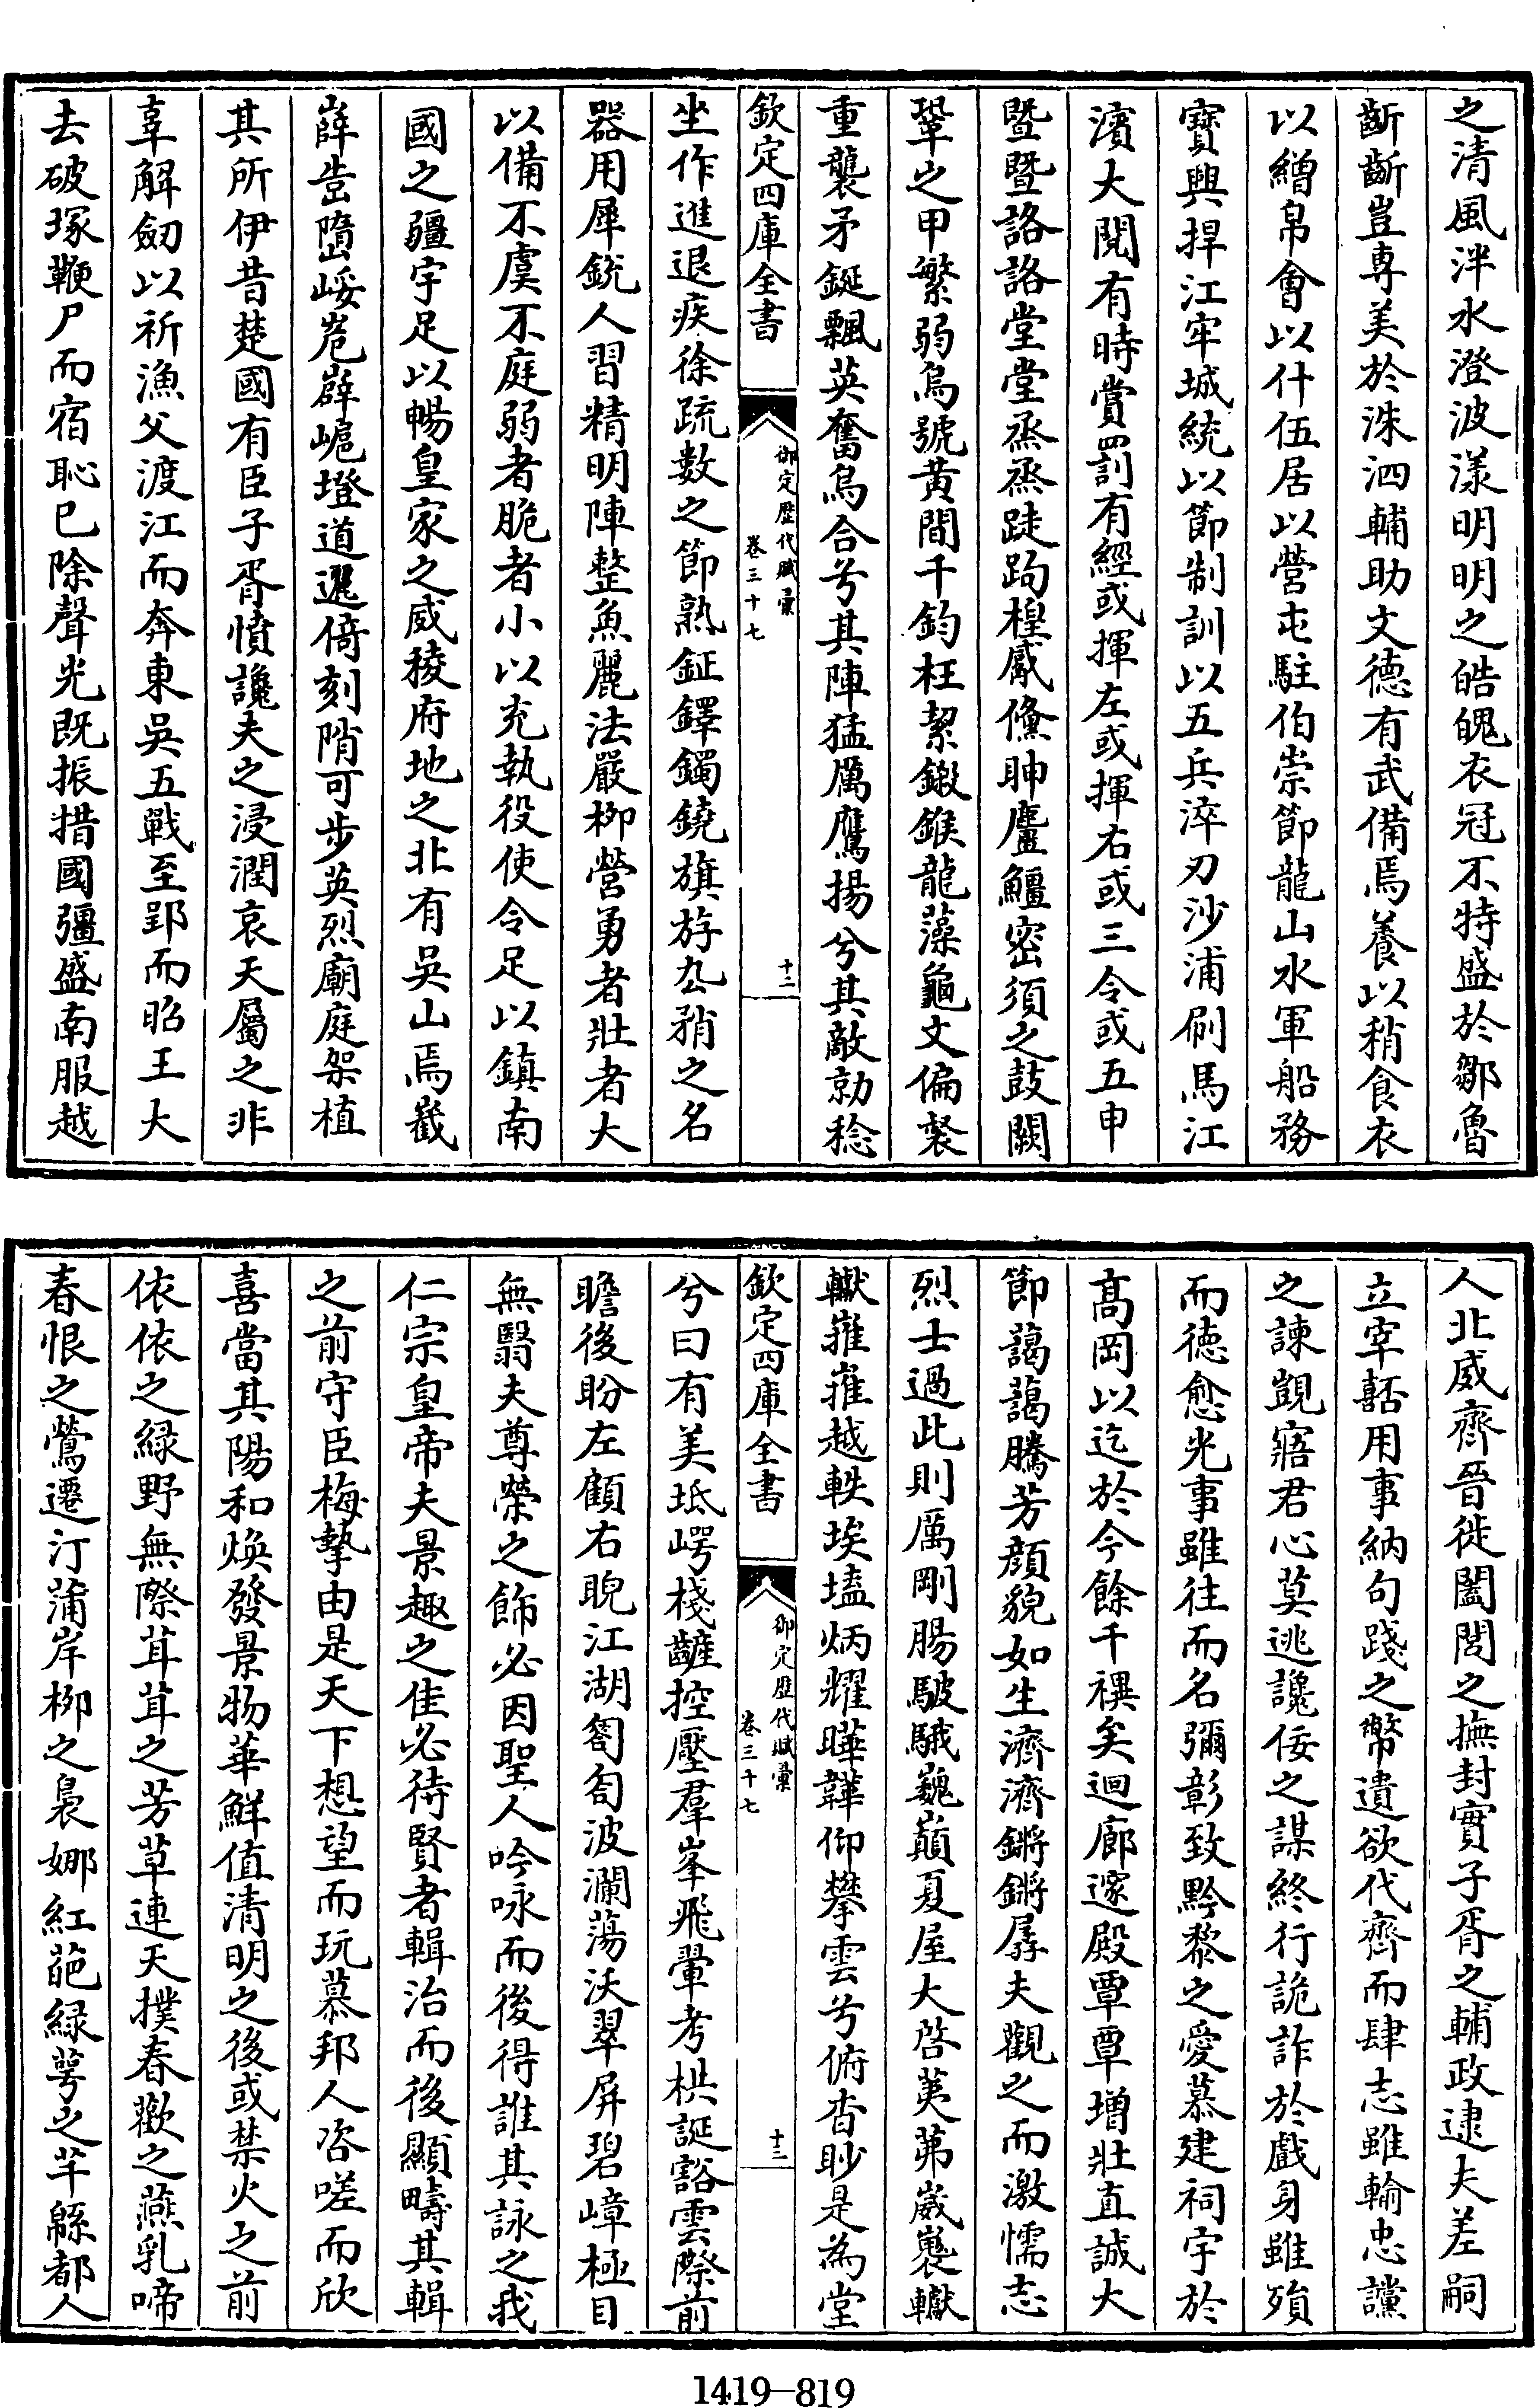 之清風泮水澄波漾明明之皓魄衣冠不特盛於鄒魯
齗齗豈専美於洙泗輔助文德有武備焉養以稍食衣
以繒帛會以什伍居以營屯駐伯崇節龍山水軍船務
寳興捍江牢城統以節制訓以五兵淬刃沙浦刷馬江
濵大閱有時賞罰有經或揮左或揮右或三令或五申
暨暨詻詻堂堂烝烝踕跔楻慼儵䀕廬鱷密須之鼓闕
鞏之甲繁弱烏號黄間千鈞枉絜鏾鍭龍藻龜文偏裻
重襲矛鋋飄英奮烏合兮其陣猛厲鷹揚兮其敵勍稔
欽定四庫全書
御定歴代賦彚
卷三十七
十二
坐作進退疾徐疏數之節熟鉦鐸鐲鐃旗斿厹矟之名
器用犀銳人習精明陣整魚麗法嚴栁營勇者壯者大
以備不虞不庭弱者脆者小以充執役使令足以鎮南
國之疆宇足以暢皇家之威稜府地之北有吳山焉嶻
嶭岧㠑崣㟴𡾊㟪墱道邐倚刻陗可步英烈廟庭架植
其所伊昔楚國有臣子胥憤讒夫之浸潤哀天屬之非
辜解劒以祈漁父渡江而奔東吳五戰至郢而昭王大
去破塚鞭尸而宿恥已除聲光既振措國彊盛南服越
人北威齊晉徙闔閭之撫封實子胥之輔政逮夫差嗣
立宰嚭用事納句踐之幣遺欲代齊而肆志雖輸忠讜
之諫覬寤君心莫逃讒佞之謀終行詭詐於戲身雖殞
而德愈光事雖往而名彌彰致黔黎之愛慕建祠宇於
髙岡以迄於今餘千禩矣迴廊邃殿覃覃增壯直誠大
節藹藹騰芳顔貌如生濟濟鏘鏘孱夫觀之而激懦志
烈士過此則厲剛腸駊騀巍巔夏屋大啓苐苐崴嵬轞
轞嶊嶊越軼埃壒炳耀曄韡仰攀雲兮俯杳眇是為堂
欽定四庫全書
御定歴代賦彚
卷三十七
十三
兮曰有美坻崿棧齴控壓羣峯飛翬考栱誕谿雲際前
瞻後盼左顧右睨江湖㔩匌波瀾蕩沃翠屏碧嶂極目
無翳夫尊榮之飾必因聖人吟咏而後得誰其詠之我
仁宗皇帝夫景趣之佳必待賢者輯治而後顯疇其輯
之前守臣梅摯由是天下想望而玩慕邦人咨嗟而欣
喜當其陽和煥發景物華鮮值清明之後或禁火之前
依依之緑野無際茸茸之芳草連天撲春歡之燕乳啼
春恨之鶯遷汀蒲岸栁之裊娜紅葩緑萼之芊緜都人
1419—819